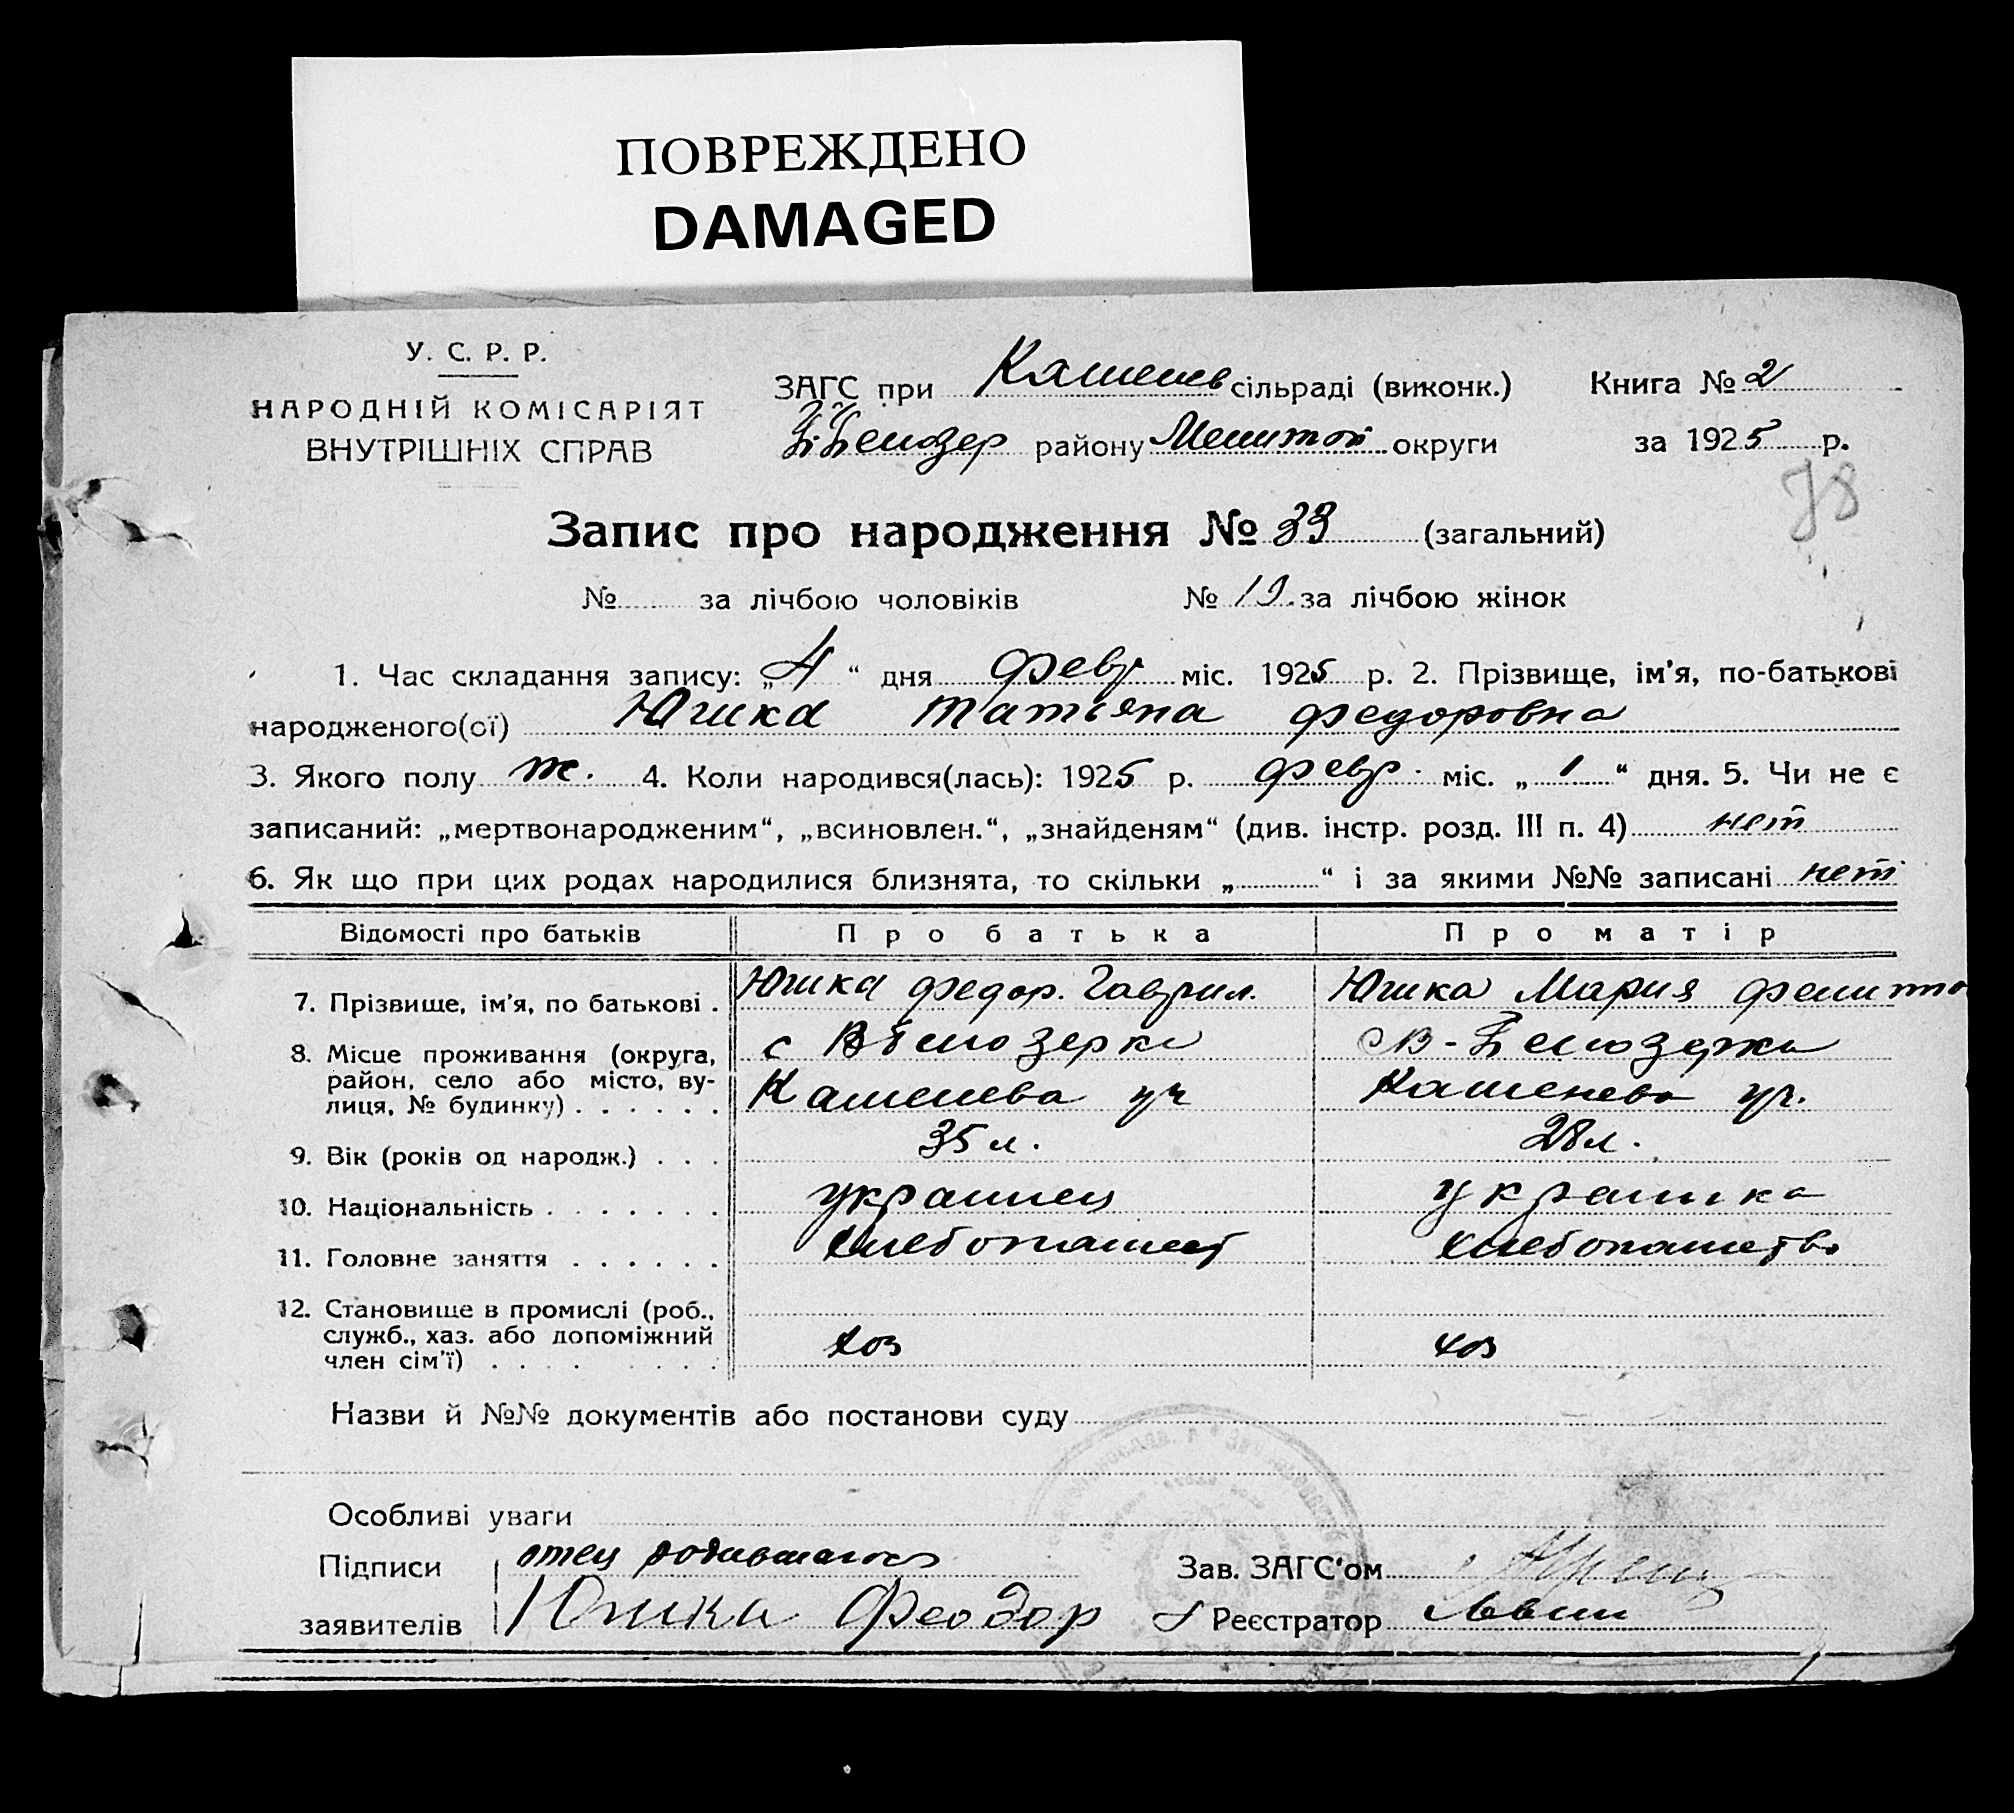 ПОВРЕЖДЕНО
DAMAGED
У. С. Р. Р.
НАРОДНІЙ КОМІСАРІЯТ
ВНУТРІШНІХ СПРАВ
ЗАГС при Кашенев сільраді (виконк.)
району Мелитоп округи
Книга № 2
за 1925 р.
78
Запис про народження № 33 (загальний)
№ за лічбою чоловіків № 19 за лічбою жінок
1. Час складання запису: „4“ дня февр міс. 1925 р. 2. Прізвище, ім'я, по-батькові
народженого(ої) Юшка Татьяна Федоровна
3. Якого полу ж. 4. Коли народився(лась): 1925 р. февр. міс. „1“ дня. 5. Чи не є
записаний: „мертвонародженим“, „всиновлен.“, „знайденям“ (див. інстр. розд. III п. 4) нет
6. Як що при цих родах народилися близнята, то скільки „ “ і за якими №№ записані нет
Відомості про батьків Про батька Про матір
7. Прізвище, ім'я, по батькові . Юшка Федор. Гаврил. Юшка Мария
8. Місце проживання (округа, район, село або місто, вулиця, № будинку) . . . . . . с В Белозерка В-Белозерка
Кашенева уч Кашенева уч.
9. Вік (років од народж.) . . . 35 л. 28 л.
10. Національність . . . . . . . украинец украинка
11. Головне заняття . . . . . . хлебопашест хлебопашество
12. Становище в промислі (роб.,
служб., хаз. або допоміжний
член сім'ї) . . . . . . . . хоз хоз
Назви й №№ документів або постанови суду
Особливі уваги
Підписи отец родившагося Зав. ЗАГС'ом
заявителів Юшка Феодор Реєстратор